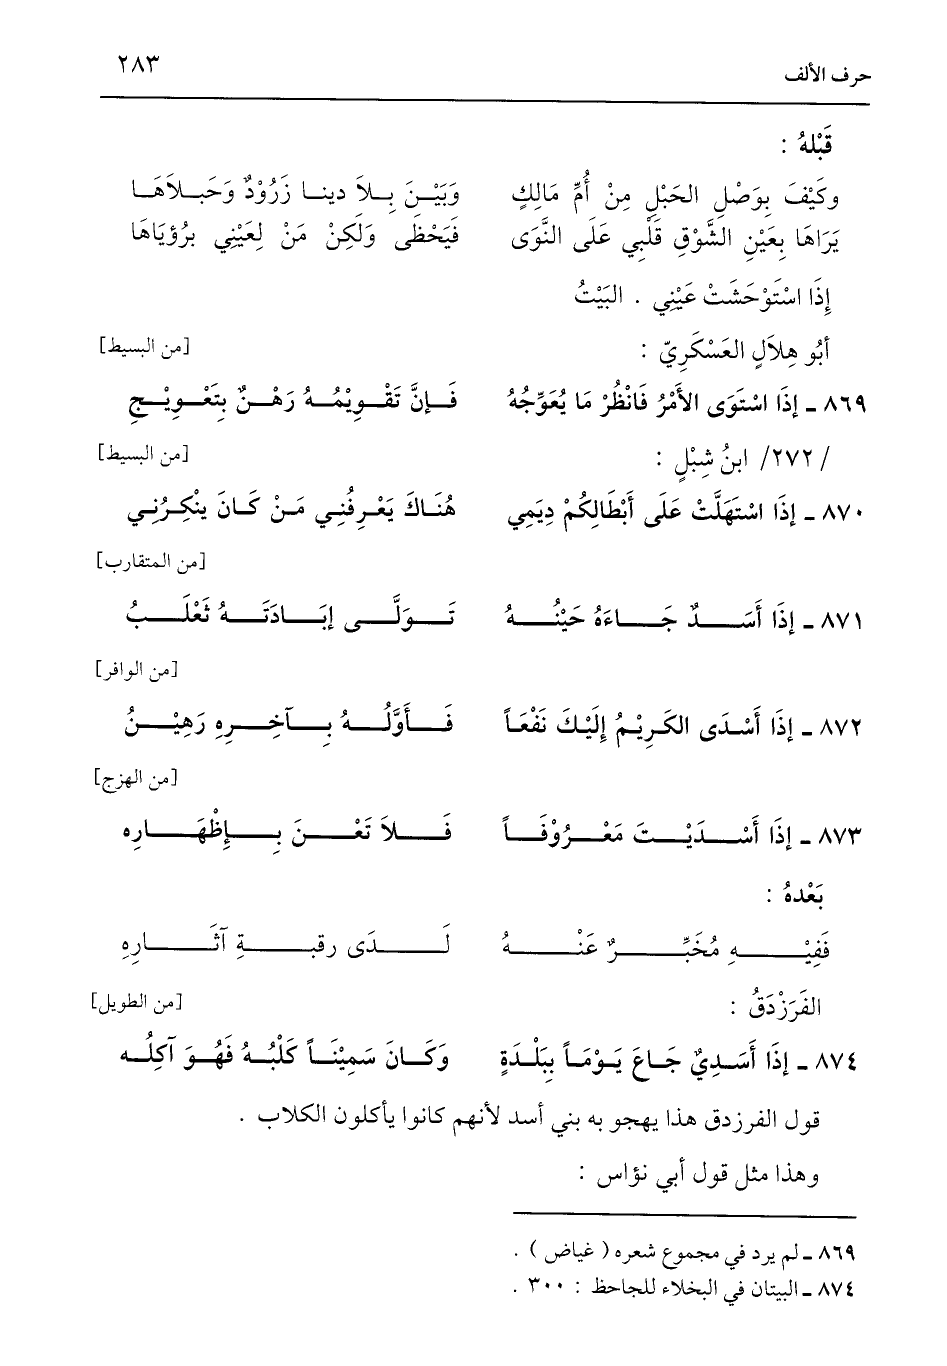 حرف الألف ٢٨٣
قَبْلهُ :
وكَيْفَ بِوَصْلِ الحَبْلِ مِنْ أُمِّ مَالِكٍ وَبَيْنَ بِلاَ دينا زَرُوْدٌ وَحَبلاَهَا
يَرَاهَا بِعَيْنِ الشَّوْقِ قَلْبِي عَلَى النَّوَى فَيَحْظَى وَلَكِنْ مَنْ لِعَيْنِي برُؤيَاهَا
إِذَا اسْتَوْحَشَتْ عَيْنِي . البَيْتُ
أبُو هِلاَلٍ العَسْكَرِيّ : [من البسيط]
٨٦٩ ـ إذَا اسْتَوَى الأمْرُ فَانْظُرْ مَا يُعَوِّجُهُ فَإنَّ تَقْوِيْمُهُ رَهْنٌ بِتَعْوِيْجِ
/ ٢٧٢/ ابنُ شِبْلٍ : [من البسيط]
٨٧٠ ـ إذَا اسْتَهَلَّتْ عَلَى أَبْطَالِكُمْ دِيَمِي هُنَاكَ يَعْرِفُنِي مَنْ كَانَ ينْكِرُنِي
[من المتقارب]
٨٧١ ـ إذَا أَسَدٌ جَاءَهُ حَيْنُهُ تَوَلَّى إبَادَتَهُ ثَعْلَبُ
[من الوافر]
٨٧٢ ـ إذَا أَسْدَى الكَرِيْمُ إلَيْكَ نَفْعَاً فَأوَّلُهُ بِآخِرِهِ رَهِيْنُ
[من الهزج]
٨٧٣ ـ إذَا أَسْدَيْتَ مَعْرُوْفَاً فَلاَ تَعْنَ بِإظْهَارِه
بَعْدهُ :
فَفِيْهِ مُخَبِّرٌ عَنْهُ لَدَى رقبةِ آثَارِهِ
الفَرَزْدَقُ : [من الطويل]
٨٧٤ ـ إذَا أَسَدِيٌ جَاعَ يَوْمَاً بِبَلْدَةٍ وَكَانَ سَمِيْنَاً كَلْبُهُ فَهُوَ آكِلُه
قول الفرزدق هذا يهجو به بني أسد لأنهم كانوا يأكلون الكلاب .
وهذا مثل قول أبي نؤاس :
٨٦٩ ـ لم يرد في مجموع شعره ( غياض ) .
٨٧٤ ـ البيتان في البخلاء للجاحظ : ٣٠٠ .